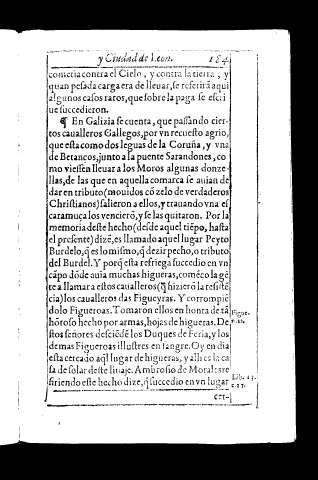 y Ciudad de Leon. 184
cometia contra el Cielo, y contra la tierra, y
quan pesada carga era de lleuar, se referirá aqui
algunos casos raros, que sobre la paga se escri
ue succedieron.
¶ En Galizia se cuenta, que passãdo cier-
tos caualleros Gallegos, por vn recuesto agrio,
que esta como dos leguas de la Coruña, y vna
de Betanços, junto a la puente Sarandones, co
mo viessen lleuar a los Moros algunas donze-
llas, de las que en aquella comarca se auian de
dar en tributo (mouidos cõ zelo de verdaderos
Christianos) salieron a ellos, y trauando vna es
caramuça los vencierõ, y se las quitaron. Por la
memoria deste hecho (desde aquel tiẽpo, hasta
el presente) dizẽ, es llamado aquel lugar Peyto
Burdelo, q̃ es lo mismo, q̃ dezir pecho, o tributo
del Burdel. Y porq̃ esta refriega succedio en vn
cãpo dõde auia muchas higueras, comẽço la gẽ
te a llamar a estos caualleros (q̃ hizierõ la resistẽ
cia) los caualleros das Figueyras. Y corrompiẽ
dolo Figueroas. Tomaron ellos en honra de tã
hõroso hecho por armas, hojas de higueras. De
stos señores desciẽdẽ los Duques de Feria, y los
demas Figueroas illustres en sangre. Oy en dia
esta cercado aq̃l lugar de higueras, y alli es la ca
sa de solar deste linaje. Ambrosio de Morales re
firiendo este hecho dize, q̃ succedio en vn lugar
Lib. 13.
c.27.